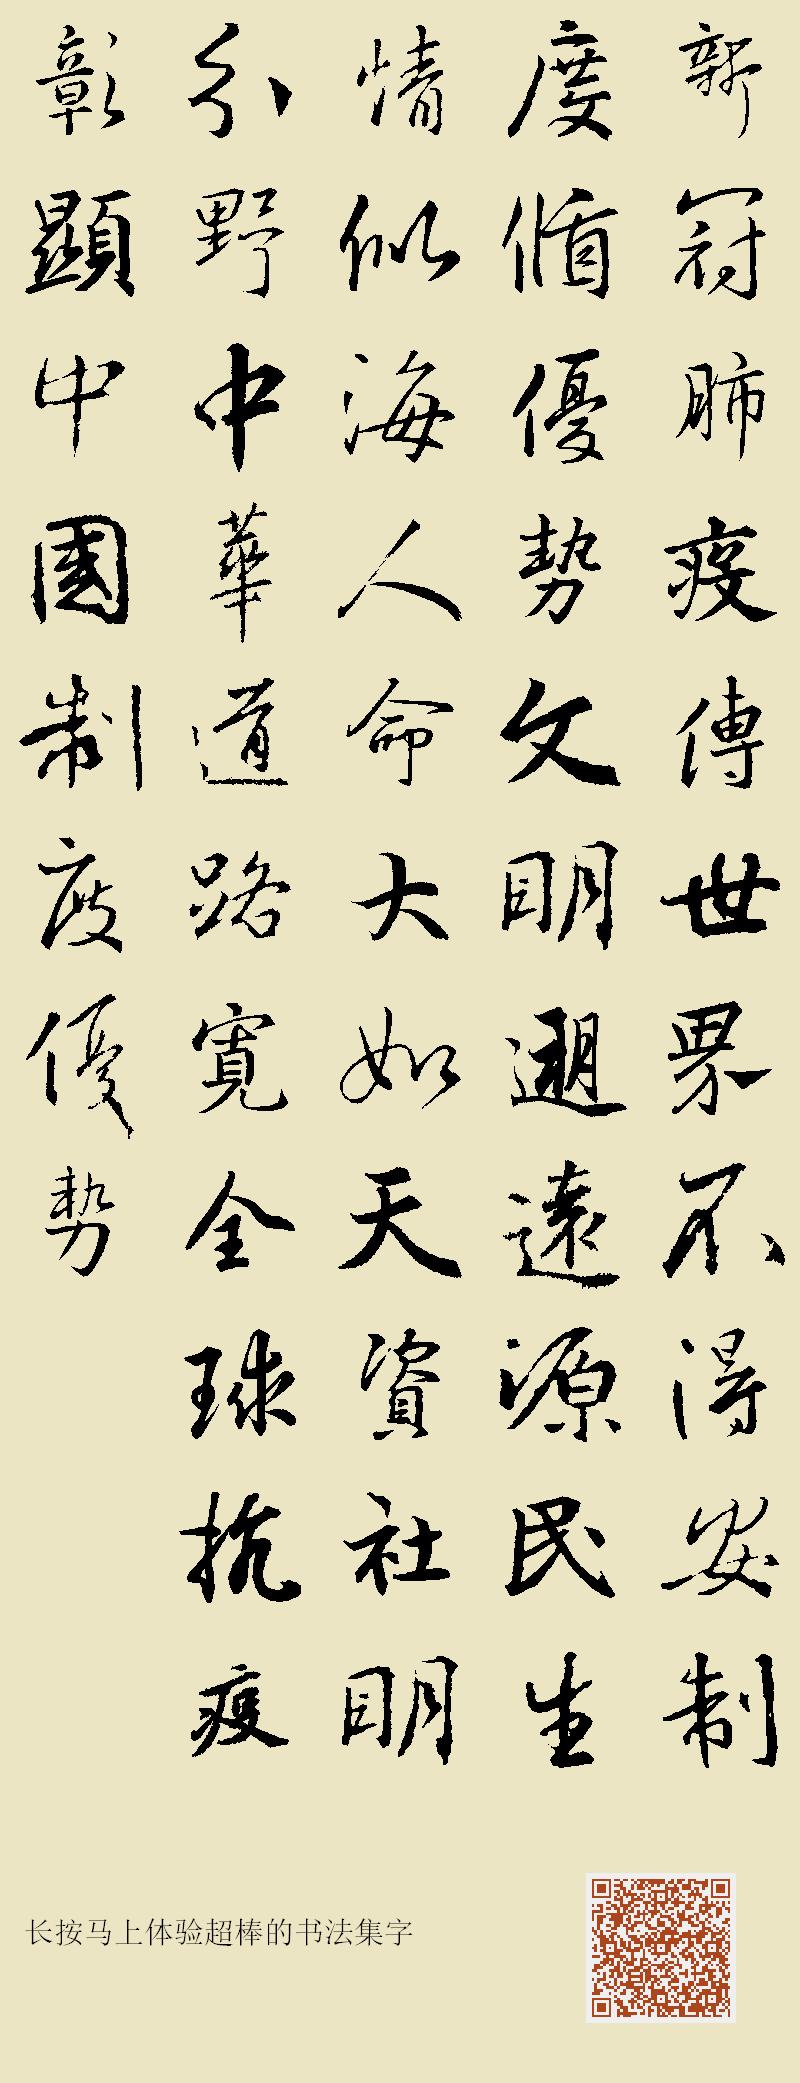 新冠肺疫傳世界不得安制
度循優勢文明遡遠源民生
情似海人命大如天資社明
分野中華道路寬全球抗疫
彰顯中國制度優勢
长按马上体验超棒的书法集字